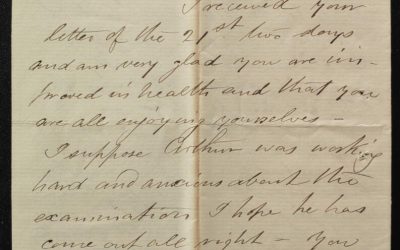 I received your
letter of the 21st two days
and am very glad you are im-
proved in health and that you
are all enjoying yourselves -
I suppose Arthur was working
hard and anxious about the
examination I hope he has
come out all right - You